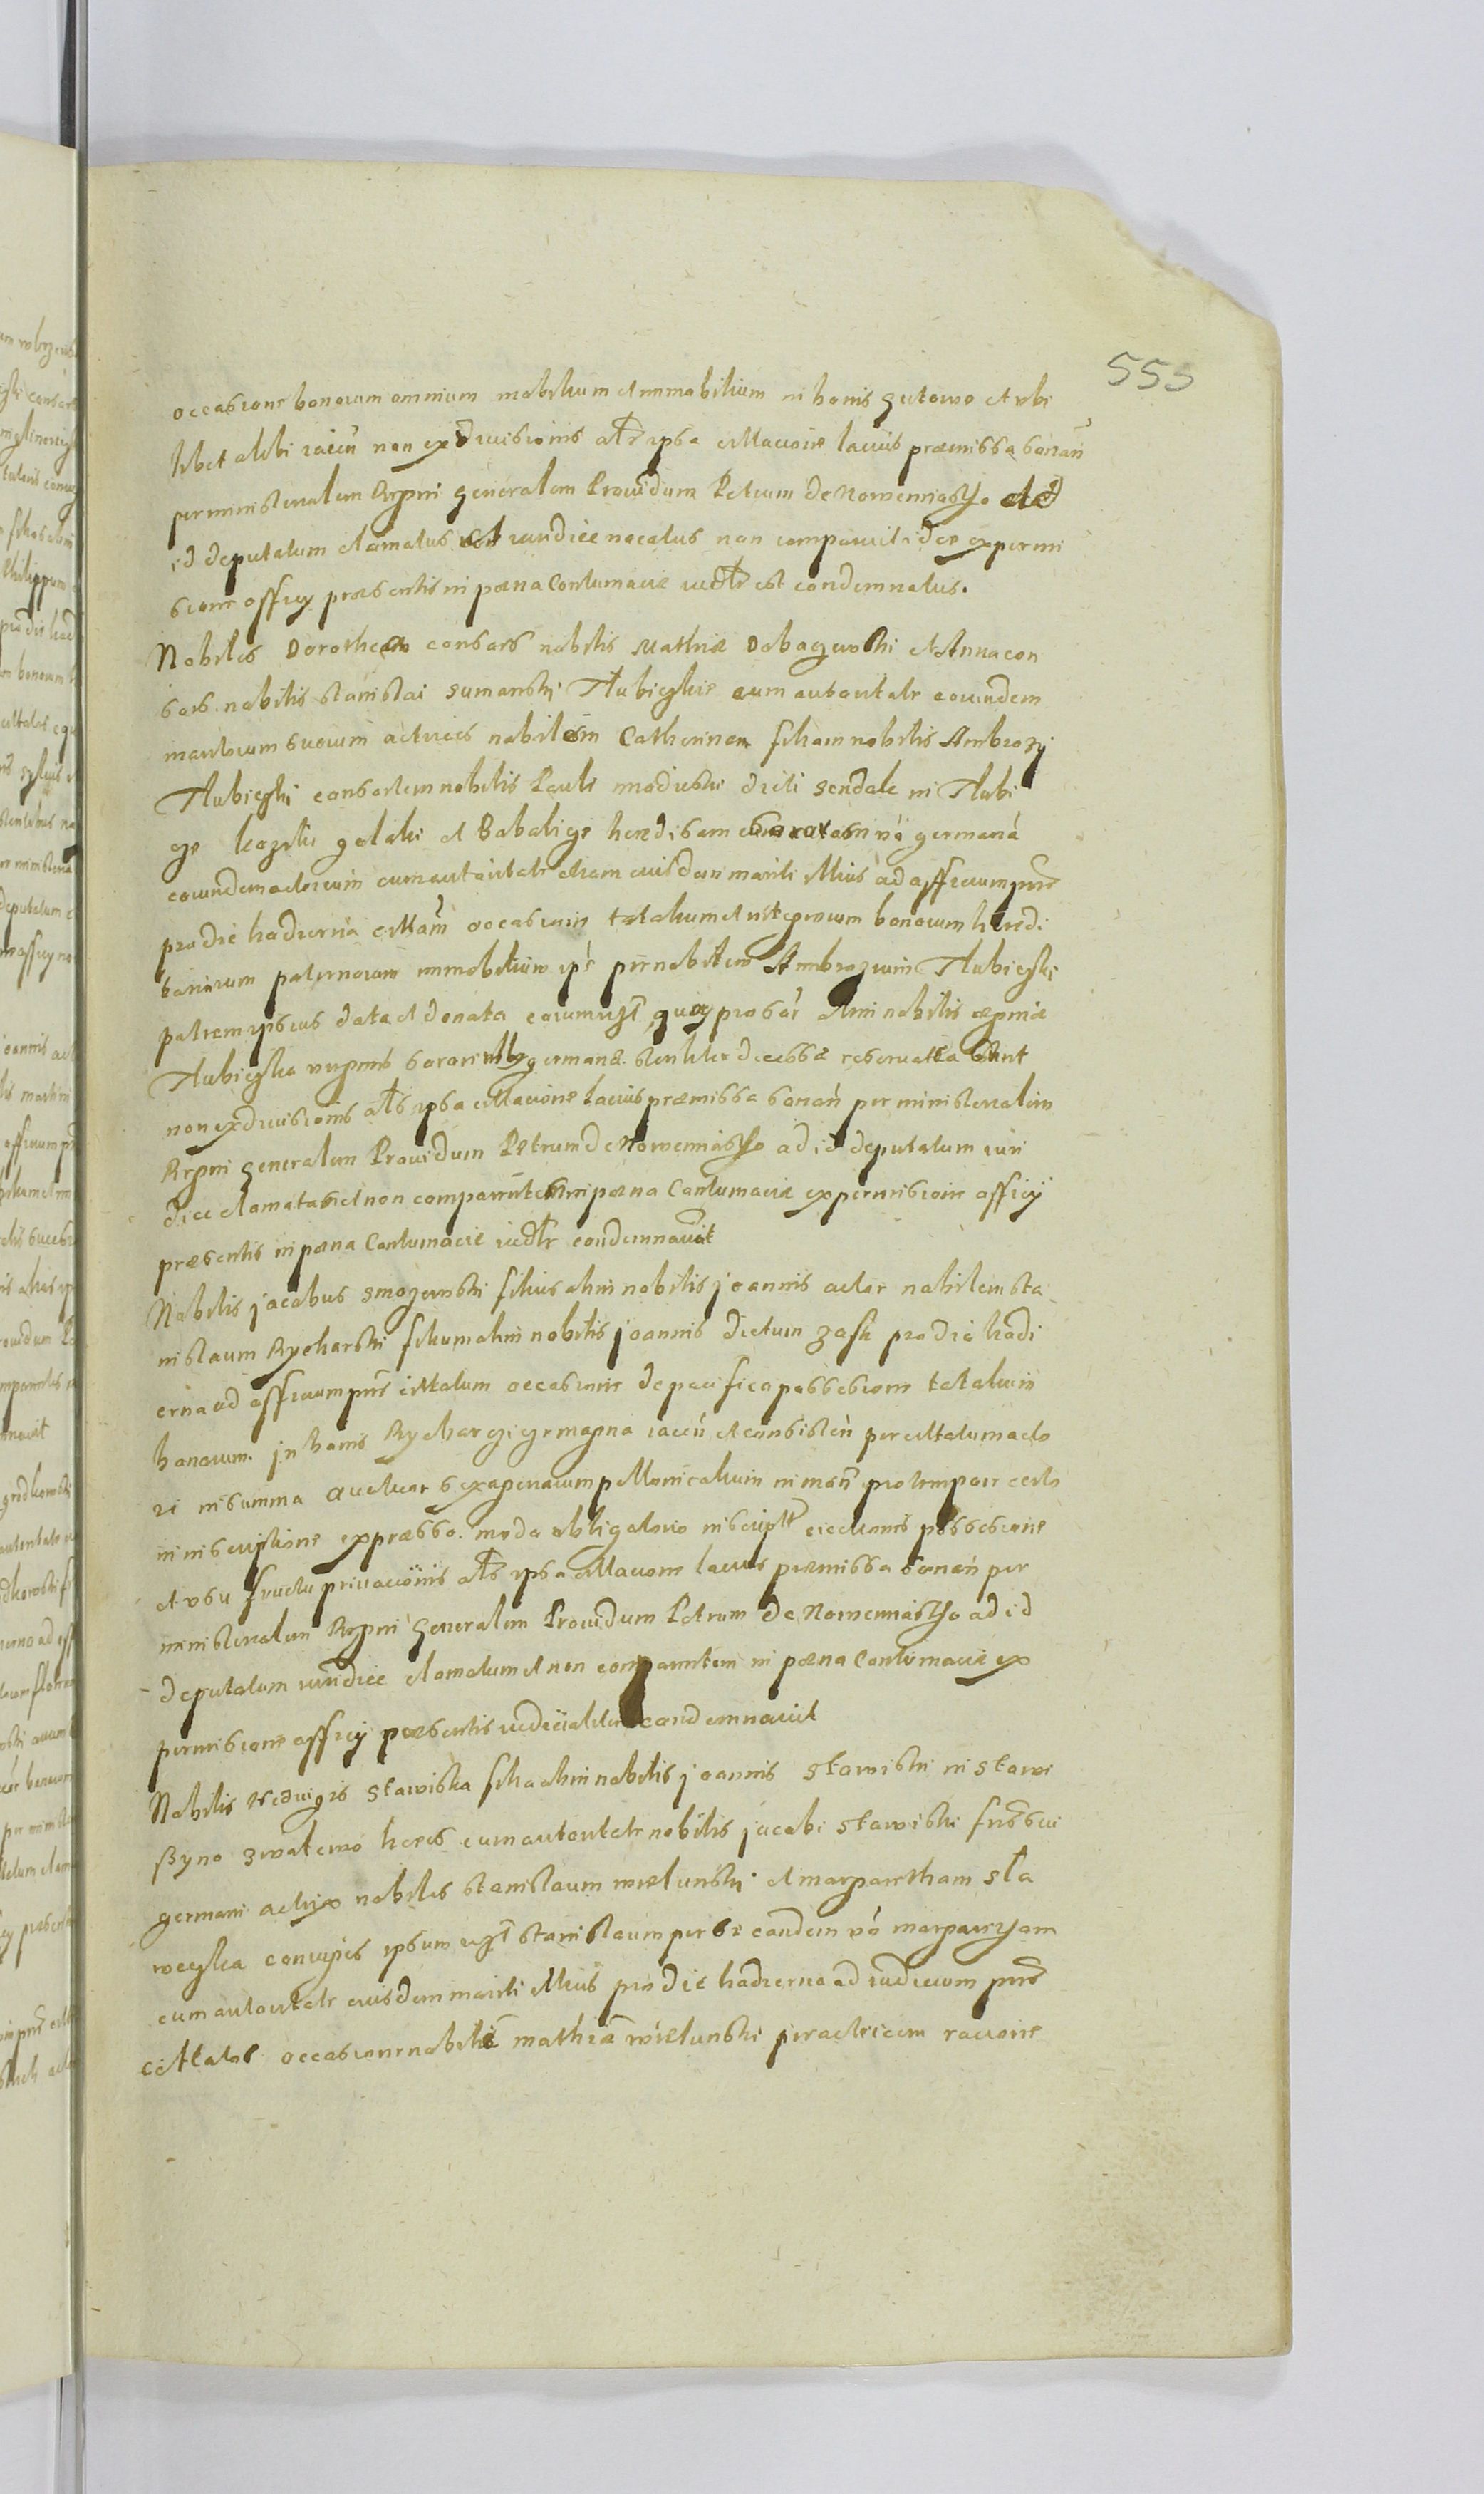 555
occasione bonorum omnium mobilium et immobilium in bonis gutowo et vbi
libet alibi iaceń non exdiuisionis alr̃ ipsa cittacione lacius præmissa sonań
per ministerialem Regni generalem Prouidum Petrum de Nowemiasto ad
id deputatum clamatus et iuridice vocatus non comparuit ideo ex permi
sione officy præsentis in pœna Contumacie iudlr̃ est condemnatus.
Nobiles Dorothea consors nobilis Mathiæ et Anna con
sors nobilis stanislai sumenski Tlubieskie cum autoritate eorundem
maritorum suorum actrices nobilem Catherinam filiam nobilis Ambrozÿ
Tlubieski consortem nobilis Pauli dicti sendale in Tlubi
ge kozelki golaki et Babalige heredisam sororem vó germaná
eorundem actorum cum autoritate etiam eiusdem mariti illius ad officium pns̃
pro die hodierna cittam̃ occasione totalium et integrorum bonorum heredi
tariorum paternorum immobilium ipś per nobilem Ambrozium Tlubieski
patrem ipsius data et donata eorumqȝ quæ pro sor̃ olim nobilis
Tlubieska virginis sororis germanæ steriliter decessæ reseruata sunt
non exdiuisionis als̃ ipsa cittacione lacius præmissa sonań per ministerialem
Regni generalem Prouidum Petrum de Nowemiasto ad id deputatum iuri
dice clamatas et non comparentes in pœna Contumaciæ ex permisione officÿ
præsentis in pœna Contumacie iudlr̃ condemnauit
Nobilis jacobus smozewski filius olim nobilis joannis actor nobilem sta
nislaum Rycharski filium olim nobilis joannis dictum zask pro die hodi
erna ad officium pns̃ cittatum occasione de pacifica possesione totalium
bonorum. in bonis Rychargigrmagna iaceń et consisteń per cittatum acto
ri in summa sexagenarum pollonicalium in mon̄ pro tempore certo
in inscriptione expræsso. modo obligatorio inscriptt̃ eieccionis possesione
et vsu fructu priuacionis als̃ ipsa cittacione lacius præmissa sonań per
ministerialem Regni generalem Prouidum Petrum de Nowemiasto ad id
deputatum iuridice clamatum et non comparentem in pœna Contumaciæ ex
permisione officÿ præsentis iudicialiter condemnauit
Nobilis Hedwigis stawiska filia olim nobilis joannis stawiski in stawi
ßyno zwalewo heres cum autoritate nobilis jacobi stawiski frīs sui
germani actrix nobiles stanislaum wielunski et margaretham sla
weczka coniuges ipsum uqȝ stanislaum per se eandem vó margaretham
cum autoritate eiusdem mariti illius pro die hodierna ad iudicium pns̃
cittatos occasione nobilē mathiā wielunski per actricem racione